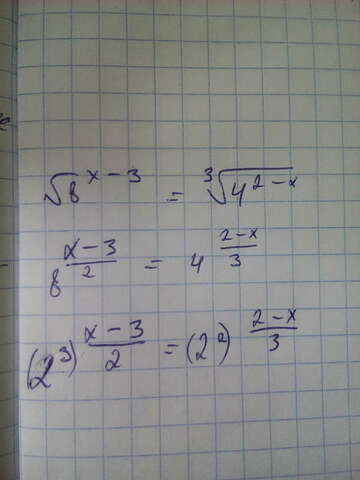 √8^(x-3) = ∛(4^(2-x))
8^((x-3)/2) = 4^((2-x)/3)
(2^3)^((x-3)/2) = (2^2)^((2-x)/3)